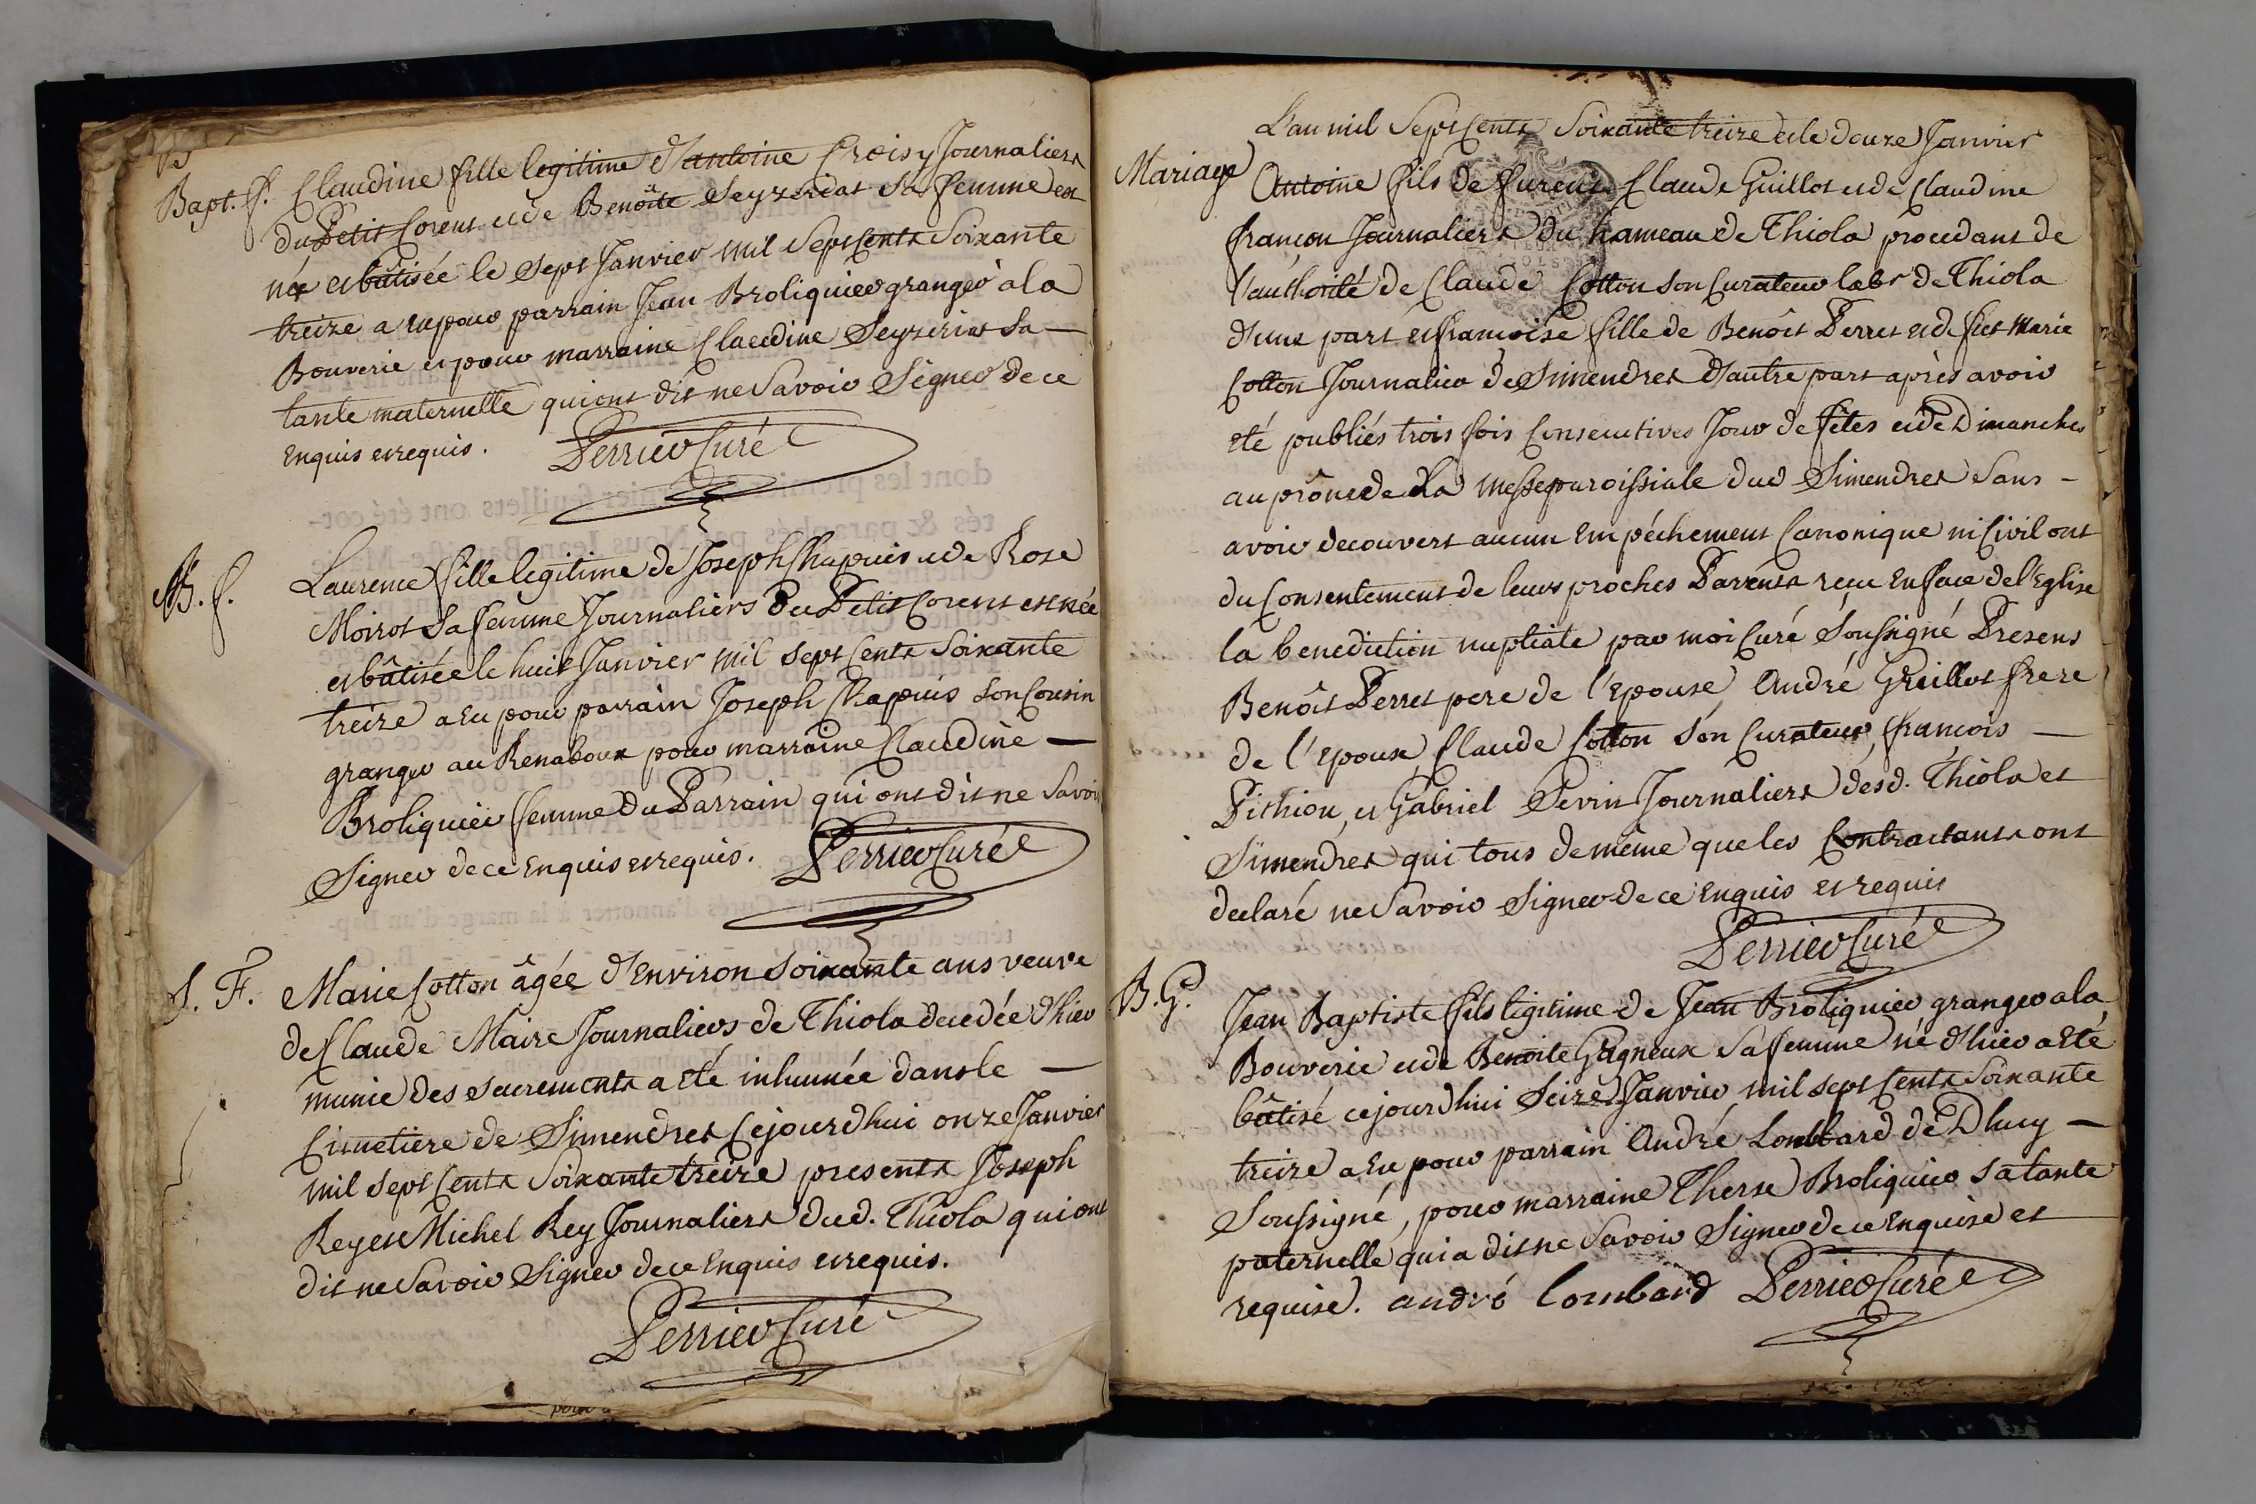 Bapt. f. Claudine fille legitime d'antoine Croisy Journaliers
du Petit Corent et de Benoîte Seyzeriat sa femme est
née et bâtisée le sept Janvier mil sept Cents Soixante
treize a eu pour parrain Jean Broliquier granger à la
Bouverie et pour marraine Claudine Seyzeriat sa —
tante maternelle qui ont dit ne Savoir Signer de ce
enquis et requis. Perrier Curé
B. f. Laurence fille legitime de Joseph Chapuis et de Rose
Moirot sa femme Journaliers du Petit Corent est née
et bâtisée le huit Janvier mil sept Cents Soixante
treize a eu pour parrain Joseph Chapuis son Cousin
granger au Renaboux pour marraine Claudine —
Broliquier femme du Parrain qui ont dit ne Savoir
Signer de ce enquis et requis. Perrier Curé
S. F. Marie Cotton âgée d'environ soixante ans veuve
de Claude Maire Journaliers de Thiola decedée d'hier
munie des sacrements a eté inhumée dans le —
Cimetiere de Simendres Cejourdhui onze Janvier
mil sept Cents Soixante treize presents Joseph
Rey et Michel Rey Journaliers dud. Thiola qui ont
dit ne Savoir Signer de ce enquis et requis.
Perrier Curé
L'an mil Sept Cents Soixante treize et le douze Janvier
Mariage Antoine fils de furent Claude Guillot et de Claudine
françon Journaliers du hameau de Thiola procedant de
l'authorité de Claude Cotton son Curateur labr de Thiola
d'une part et françoise fille de Benoît Perret et de fut Marie
Cotton Journalier de Simendres d'autre part après avoir
eté publiés trois fois Consecutives Jour de fêtes et de Dimanches
au prône de la messe paroissiale dud Simendres Sans -
avoir decouvert aucun empêchement Canonique ni Civil ont
du Consentement de leurs proches Parrents reçu en face de l'Eglise
la benediction nuptiale par moi Curé Soussigné Presens
Benoît Perret pere de l'epouse André Guillot frere
de l'epoux Claude Cotton son Curateur, françois —
Pithiou, et Gabriel Pevrin Journaliers desd. Thiola et
Simendres qui tous de même que les Contractants ont
declaré ne Savoir Signer de ce enquis et requis
Perrier Curé
B. G. Jean Baptiste fils legitime de Jean Broliquier granger a la
Bouverie et de Benoite Gagneux sa femme né d'hier a eté
bâtisé cejourdhui Seize Janvier mil sept Cents Soixante
treize a eu pour parrain André Lombard de Druy —
Soussigné, pour marraine Therse Broliquier sa tante
paternelle qui a dit ne Savoir Signer de ce enquise et
requise. andré lombard Perrier Curé